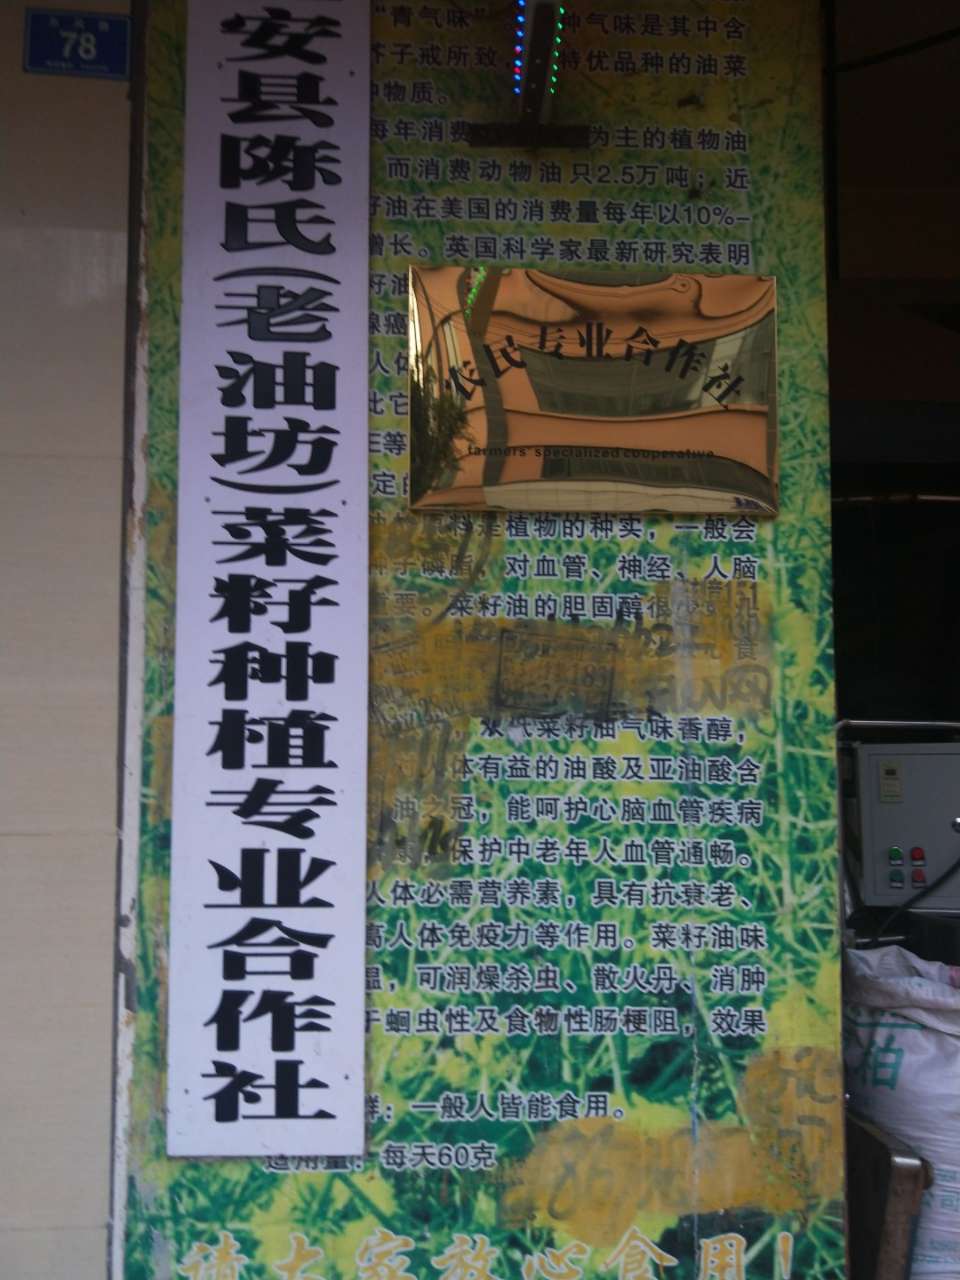 78
安县陈氏(老油坊)菜籽种植专业合作社
"青气味" 种气味是其中含
芥子戒所致, 特优品种的油菜
物质。
每年消费 为主的植物油
而消费动物油只2.5万吨;近
籽油在美国的消费量每年以10%-
增长。英国科学家最新研究表明
籽油
腺癌
人体
比它
农民专业合作社
farmers' specialized cooperative
定的
料是植物的种实,一般会
种子磷脂,对血管、神经、人脑
重要。菜籽油的胆固醇很少。
食
菜籽油气味香醇,
人体有益的油酸及亚油酸含
油之冠,能呵护心脑血管疾病
保护中老年人血管通畅。
人体必需营养素,具有抗衰老、
高人体免疫力等作用。菜籽油味
温,可润燥杀虫、散火丹、消肿
于蛔虫性及食物性肠梗阻,效果
群:一般人皆能食用。
适用量:每天60克
请大家放心食用!
柏